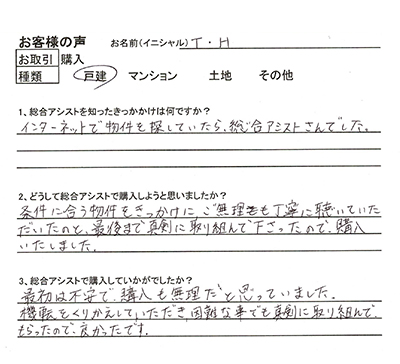 お客様の声 お名前(イニシャル) T・H
お取引 購入
種類 戸建 マンション 土地 その他
1、総合アシストを知ったきっかけは何ですか?
インターネットで物件を探していたら、総合アシストさんでした。
2、どうして総合アシストで購入しようと思いましたか?
条件に合う物件をきっかけに、ご無理をも丁寧に聴いていた
だいたのと、最後まで真剣に取り組んで下さったので、購入
いたしました。
3、総合アシストで購入していかがでしたか?
最初は不安で、購入も無理だと思っていました。
機転をくりかえしていただき、困難な事でも真剣に取り組んで、
もらったので、良かったです。